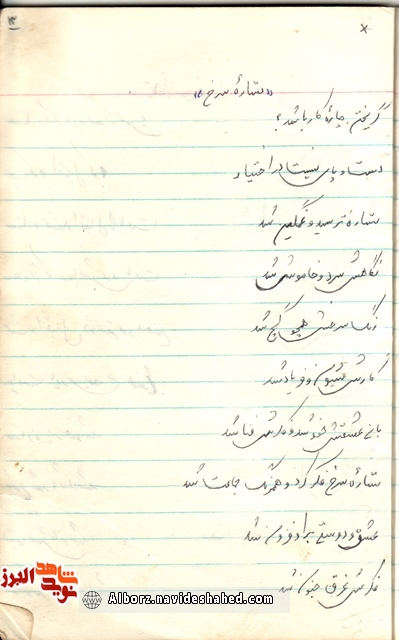 ۱۳
x
«ستاره سرخ»
گریختن چاره کار باشد؟
دست و پای نیست در اختیار
ستاره ترسید و غمگین شد
نگاهش سرد و خاموش شد
رنگ سرخش همچو گچ شد
کارش شیون و فریاد شد
باغ عشقش خزون شد و فکرش فنا شد
ستاره سرخ فکر کرد و همرنگ جماعت شد
عشق و دوستی براو فزون شد
فکرش غرق جنون شد
نوید شاهد البرز
Alborz.navideshahed.com